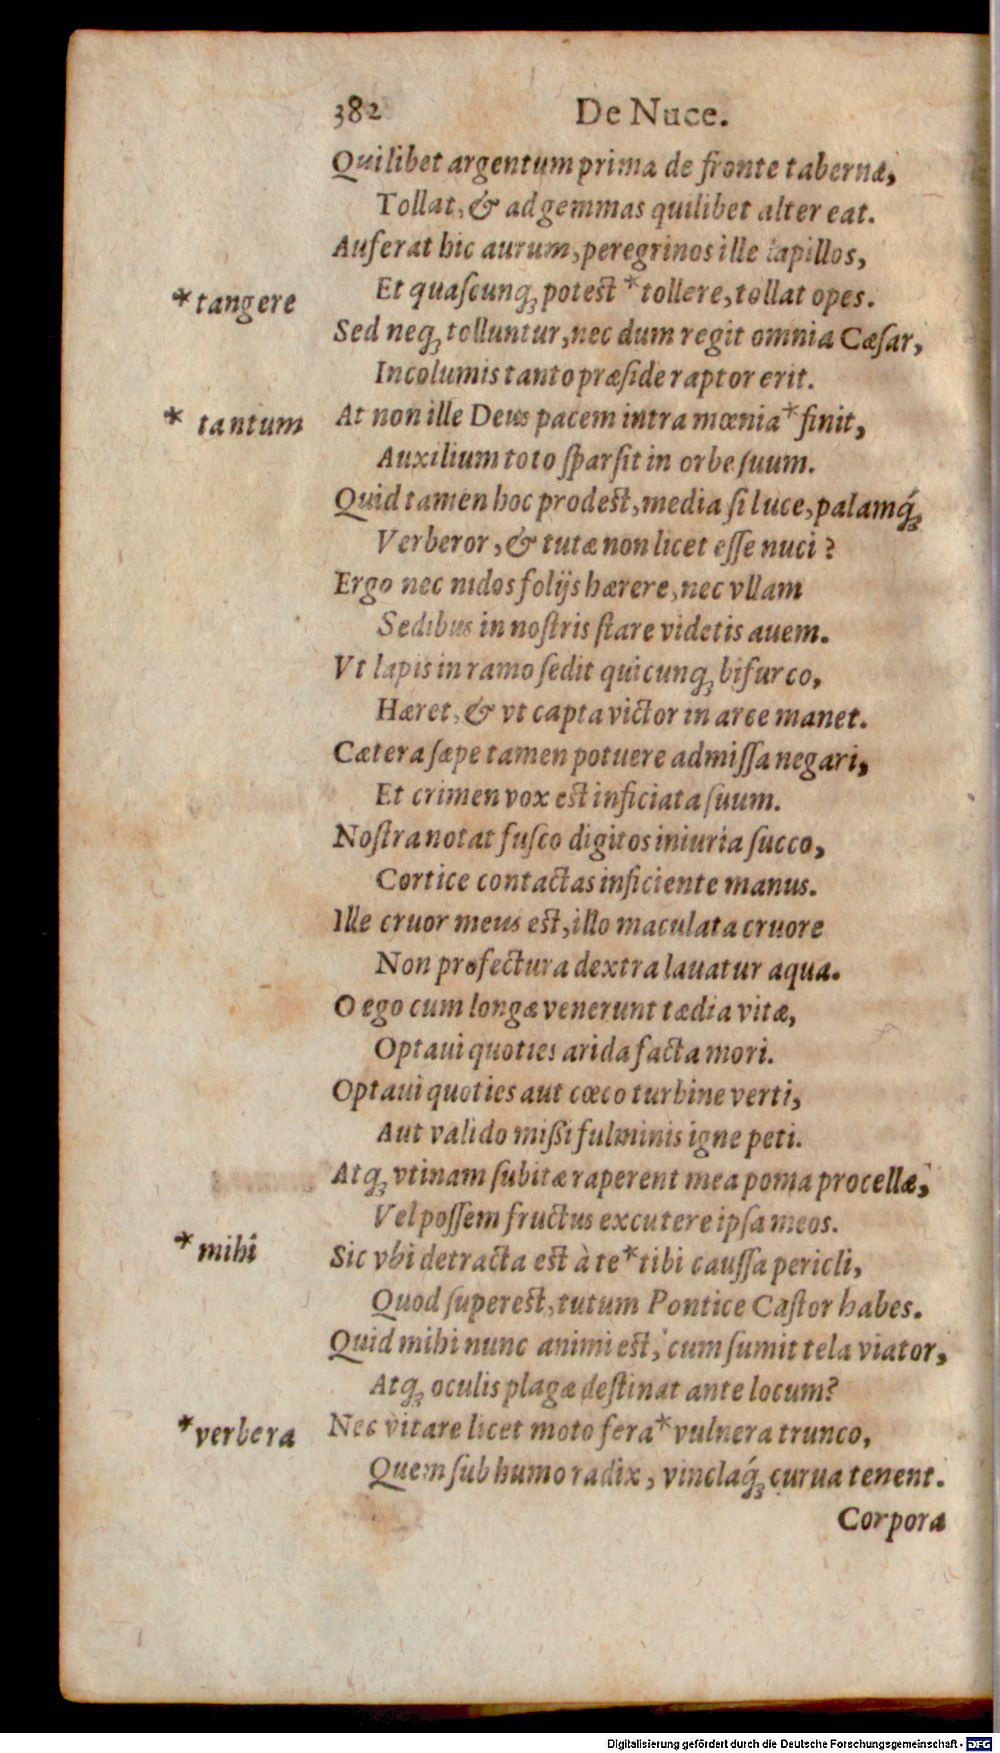 382 De Nuce.
Quilibet argentum prima de fronte tabernæ,
Tollat, & ad gemmas quilibet alter eat.
Auferat hic aurum, peregrinos ille lapillos,
*tangere Et quaſcunq; poteſt *tollere, tollat opes.
Sed neq; tolluntur, nec dum regit omnia Cæſar,
Incolumis tanto præſide raptor erit.
* tantum At non ille Deus pacem intra mœnia *finit,
Auxilium toto ſparſit in orbe ſuum.
Quid tamen hoc prodeſt, media ſi luce, palamq́;
Verberor, & tutæ non licet eſſe nuci?
Ergo nec nidos folijs hærere, nec vllam
Sedibus in noſtris ſtare videtis auem.
Vt lapis in ramo ſedit quicunq; bifurco,
Hæret, & vt capta victor in arce manet.
Cætera ſæpe tamen potuere admiſſa negari,
Et crimen vox eſt inficiata ſuum.
Noſtra notat fuſco digitos iniuria ſucco,
Cortice contactas inficiente manus.
Ille cruor meus eſt, illo maculata cruore
Non profectura dextra lauatur aqua.
O ego cum longæ venerunt tædia vitæ,
Optaui quoties arida facta mori.
Optaui quoties aut cœco turbine verti,
Aut valido miſſi fulminis igne peti.
Atq; vtinam ſubitæ raperent mea poma procellæ,
Vel poſſem fructus excutere ipſa meos.
*mihi Sic vbi detracta eſt à te *tibi cauſſa pericli,
Quod ſupereſt, tutum Pontice Caſtor habes.
Quid mihi nunc animi eſt, cum ſumit tela viator,
Atq; oculis plagæ deſtinat ante locum?
*verbera Nec vitare licet moto fera *vulnera trunco,
Quem ſub humo radix, vinclaq́; curua tenent.
Corpora
Digitalisierung gefördert durch die Deutsche Forschungsgemeinschaft - DFG